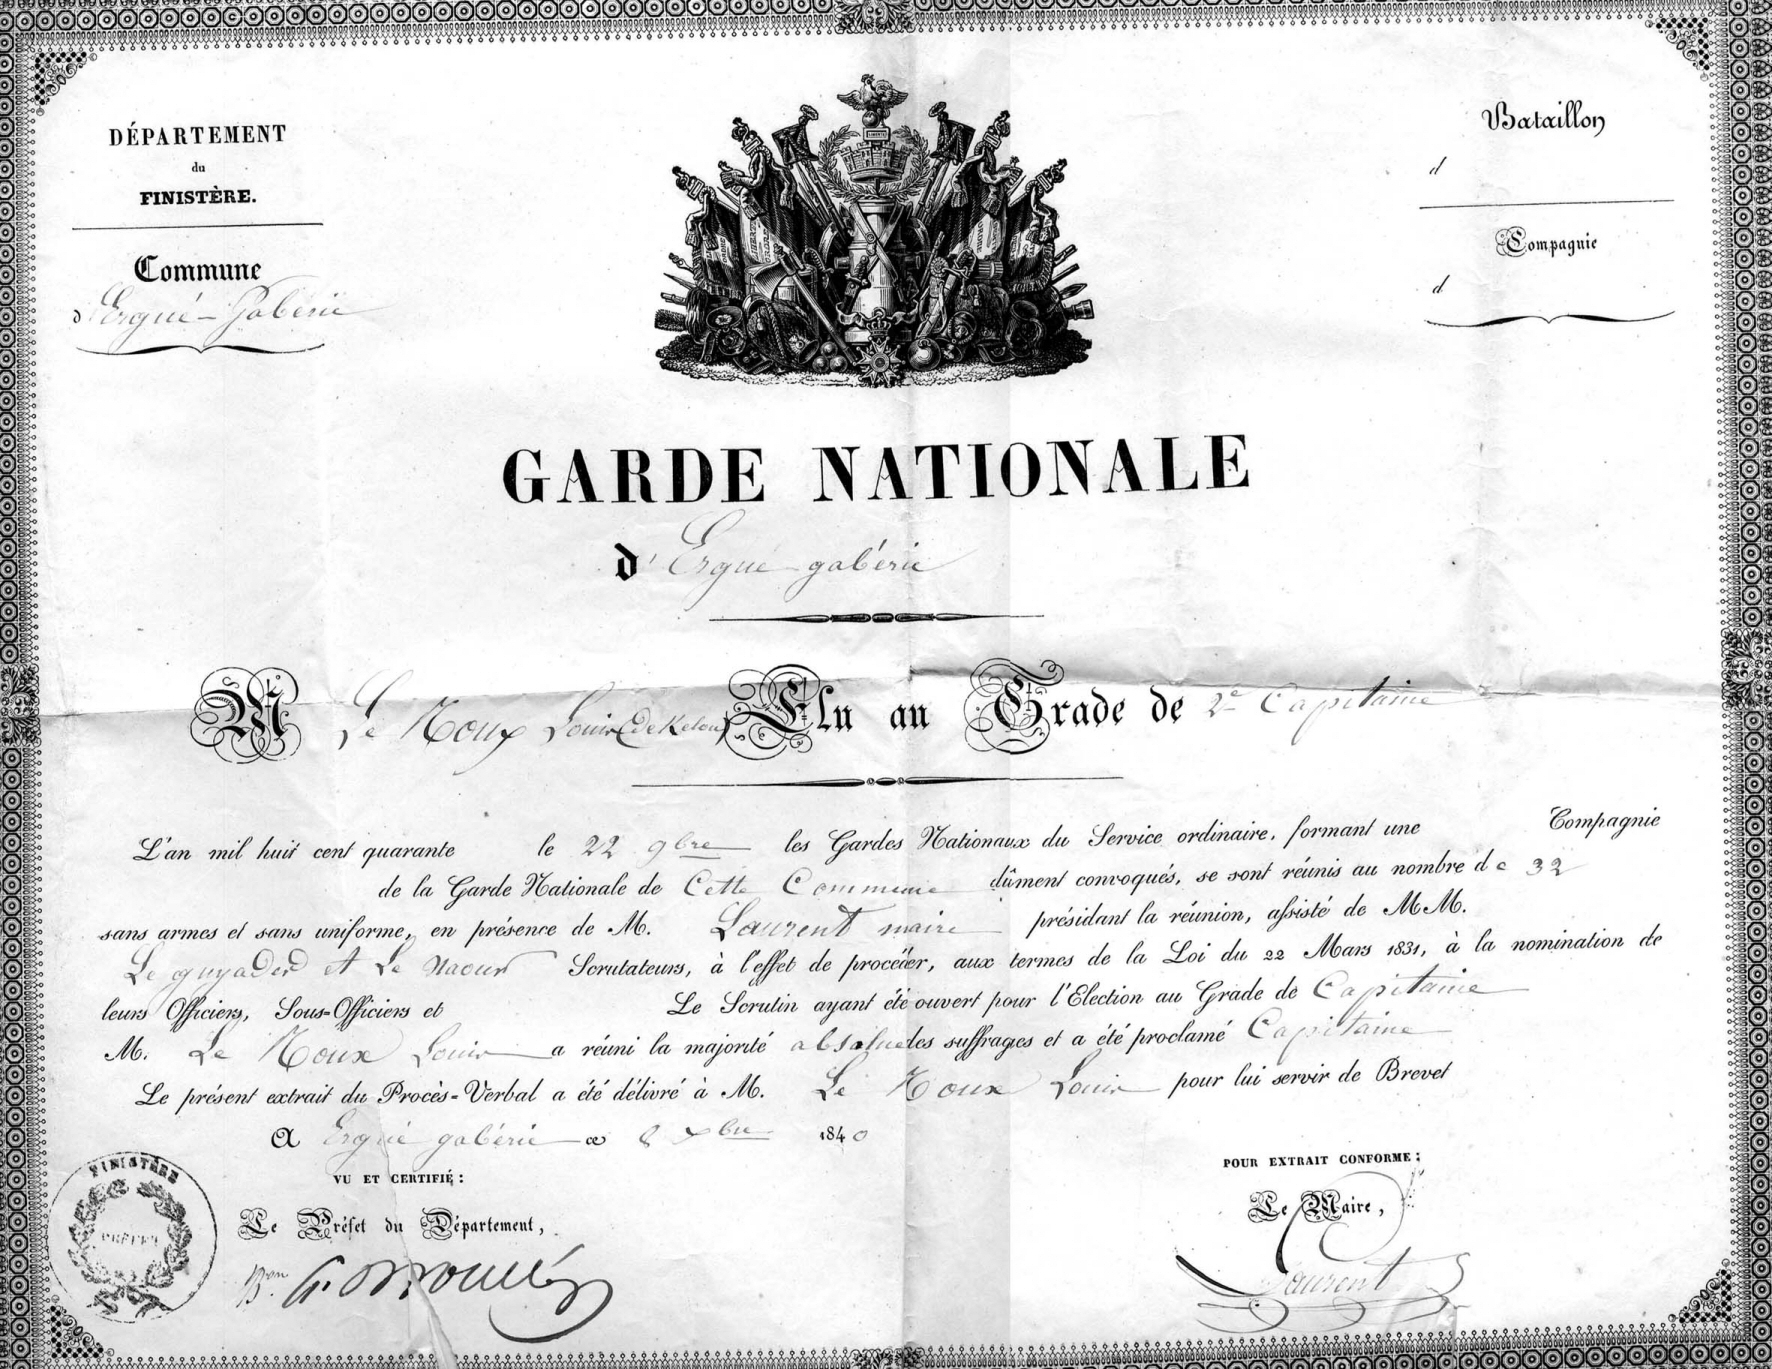 DÉPARTEMENT
du
FINISTÈRE.
Commune
d'Ergué-Gabéric
Bataillon
d
Compagnie
d
LIBERTÉ
GARDE NATIONALE
d'Ergué-gabéric
M Le Roux Louis (de Kelou) Elu au Grade de 2e Capitaine
L'an mil huit cent quarante le 22 9bre les Gardes Nationaux du Service ordinaire, formant une Compagnie
de la Garde Nationale de Cette Commune dûment convoqués, se sont réunis au nombre de 32
sans armes et sans uniforme, en présence de M. Laurent maire présidant la réunion, assisté de MM.
Le guyader et Le Naour Scrutateurs, à l'effet de procéder, aux termes de la Loi du 22 Mars 1831, à la nomination de
leurs Officiers, Sous-Officiers et Le Scrutin ayant été ouvert pour l'Election au Grade de Capitaine
M. Le Roux Louis a réuni la majorité absolue des suffrages et a été proclamé Capitaine
Le présent extrait du Procès-Verbal a été délivré à M. Le Roux Louis pour lui servir de Brevet
A Ergué gabéric ce 8 xbre 1840
VU ET CERTIFIÉ :
Le Préfet du Département,
Bon
POUR EXTRAIT CONFORME :
Le Maire,
Laurent
FINISTÈRE
PRÉFET